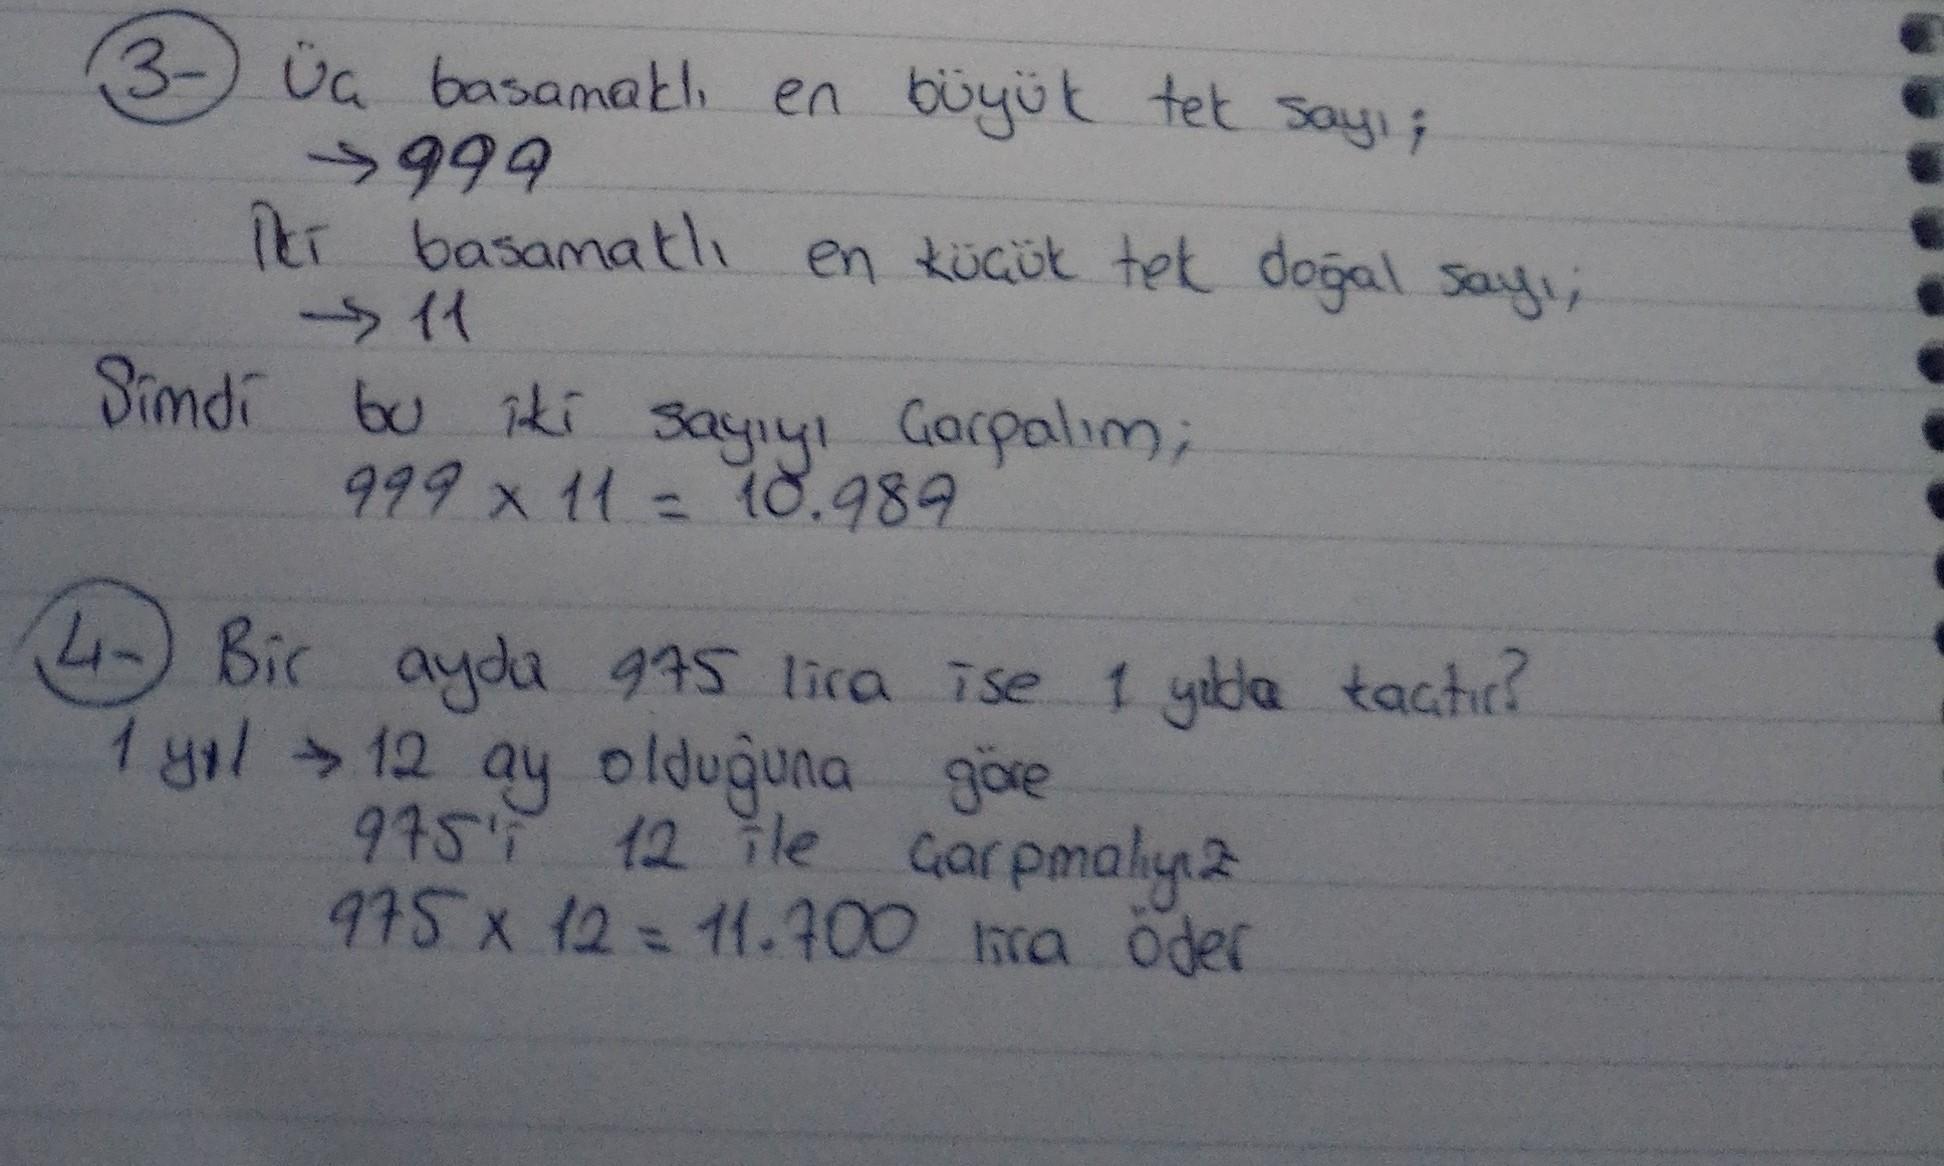 3- Üç basamaklı en büyük tek sayı;
→ 999
İki basamaklı en küçük tek doğal sayı;
→ 11
Şimdi bu iki sayıyı Çarpalım;
999 x 11 = 10.989
4- Bir ayda 975 lira ise 1 yılda kaçtır?
1 yıl → 12 ay olduğuna göre
975'i 12 ile Çarpmalıyız
975 x 12 = 11.700 lira öder